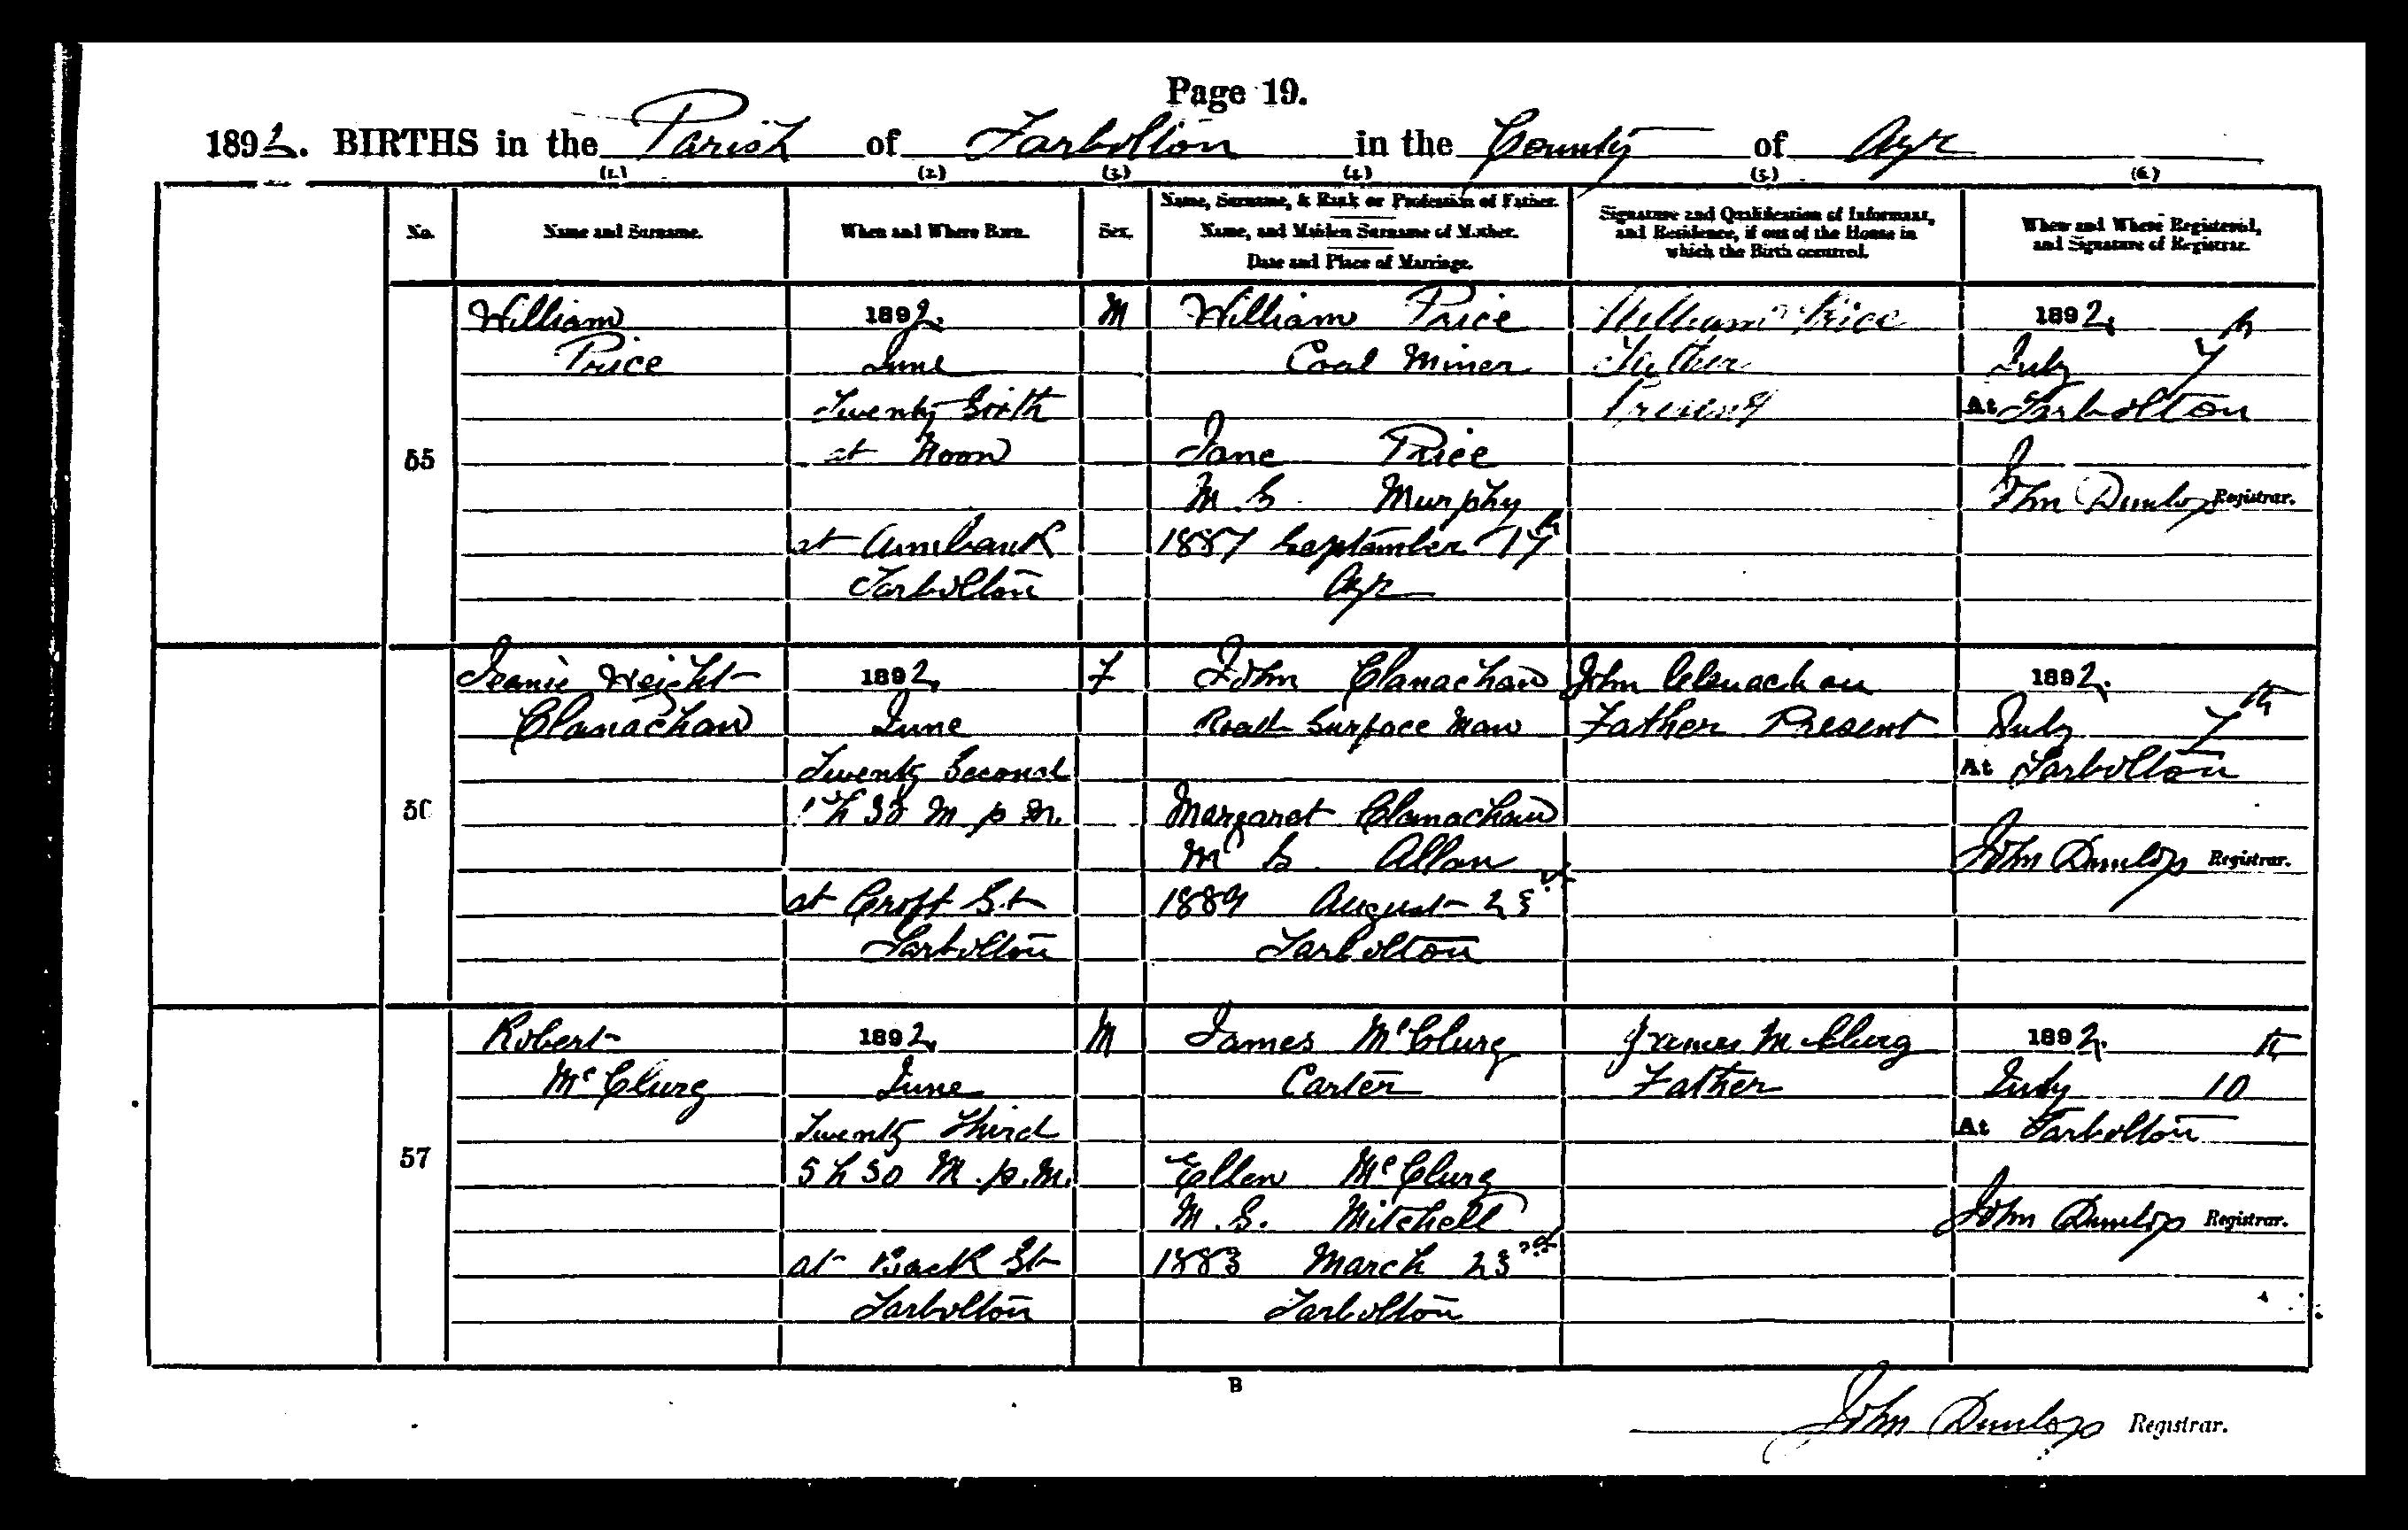 Page 19.
1892. BIRTHS in the Parish of Tarbolton in the County of Ayr
(1.) (2.) (3.) (4.) (5.) (6.)
No.
Name and Surname.
When and Where Born.
Sex.
Name, Surname, & Rank or Profession of Father.
Name, and Maiden Surname of Mother.
Date and Place of Marriage.
Signature and Qualification of Informant,
and Residence, if out of the House in
which the Birth occurred.
When and Where Registered,
and Signature of Registrar.
55
William
Price
1892.
June
Twenty Sixth
at Noon
at Annbank
Tarbolton
M
William Price
Coal Miner
Jane Price
M.S. Murphy
1887 September 17th
Ayr
William Price
Father
Present
1892.
July 7th
At Tarbolton
John Dunlop Registrar.
56
Jeanie Weight
Clanachan
1892.
June
Twenty Second
1h 30 M p M.
at Croft St
Tarbolton
F
John Clanachan
Road Surface Man
Margaret Clanachan
M S. Allan
1889 August 23rd
Tarbolton
John Clanachan
Father Present
1892.
July 7th
At Tarbolton
John Dunlop Registrar.
57
Robert
McClurg
1892.
June
Twenty Third
5h 30 M. p.M.
at Back St
Tarbolton
M
James McClurg
Carter
Ellen McClurg
M.S. Mitchell
1883 March 23rd
Tarbolton
James McClurg
Father
1892.
July 10th
At Tarbolton
John Dunlop Registrar.
B
John Dunlop Registrar.